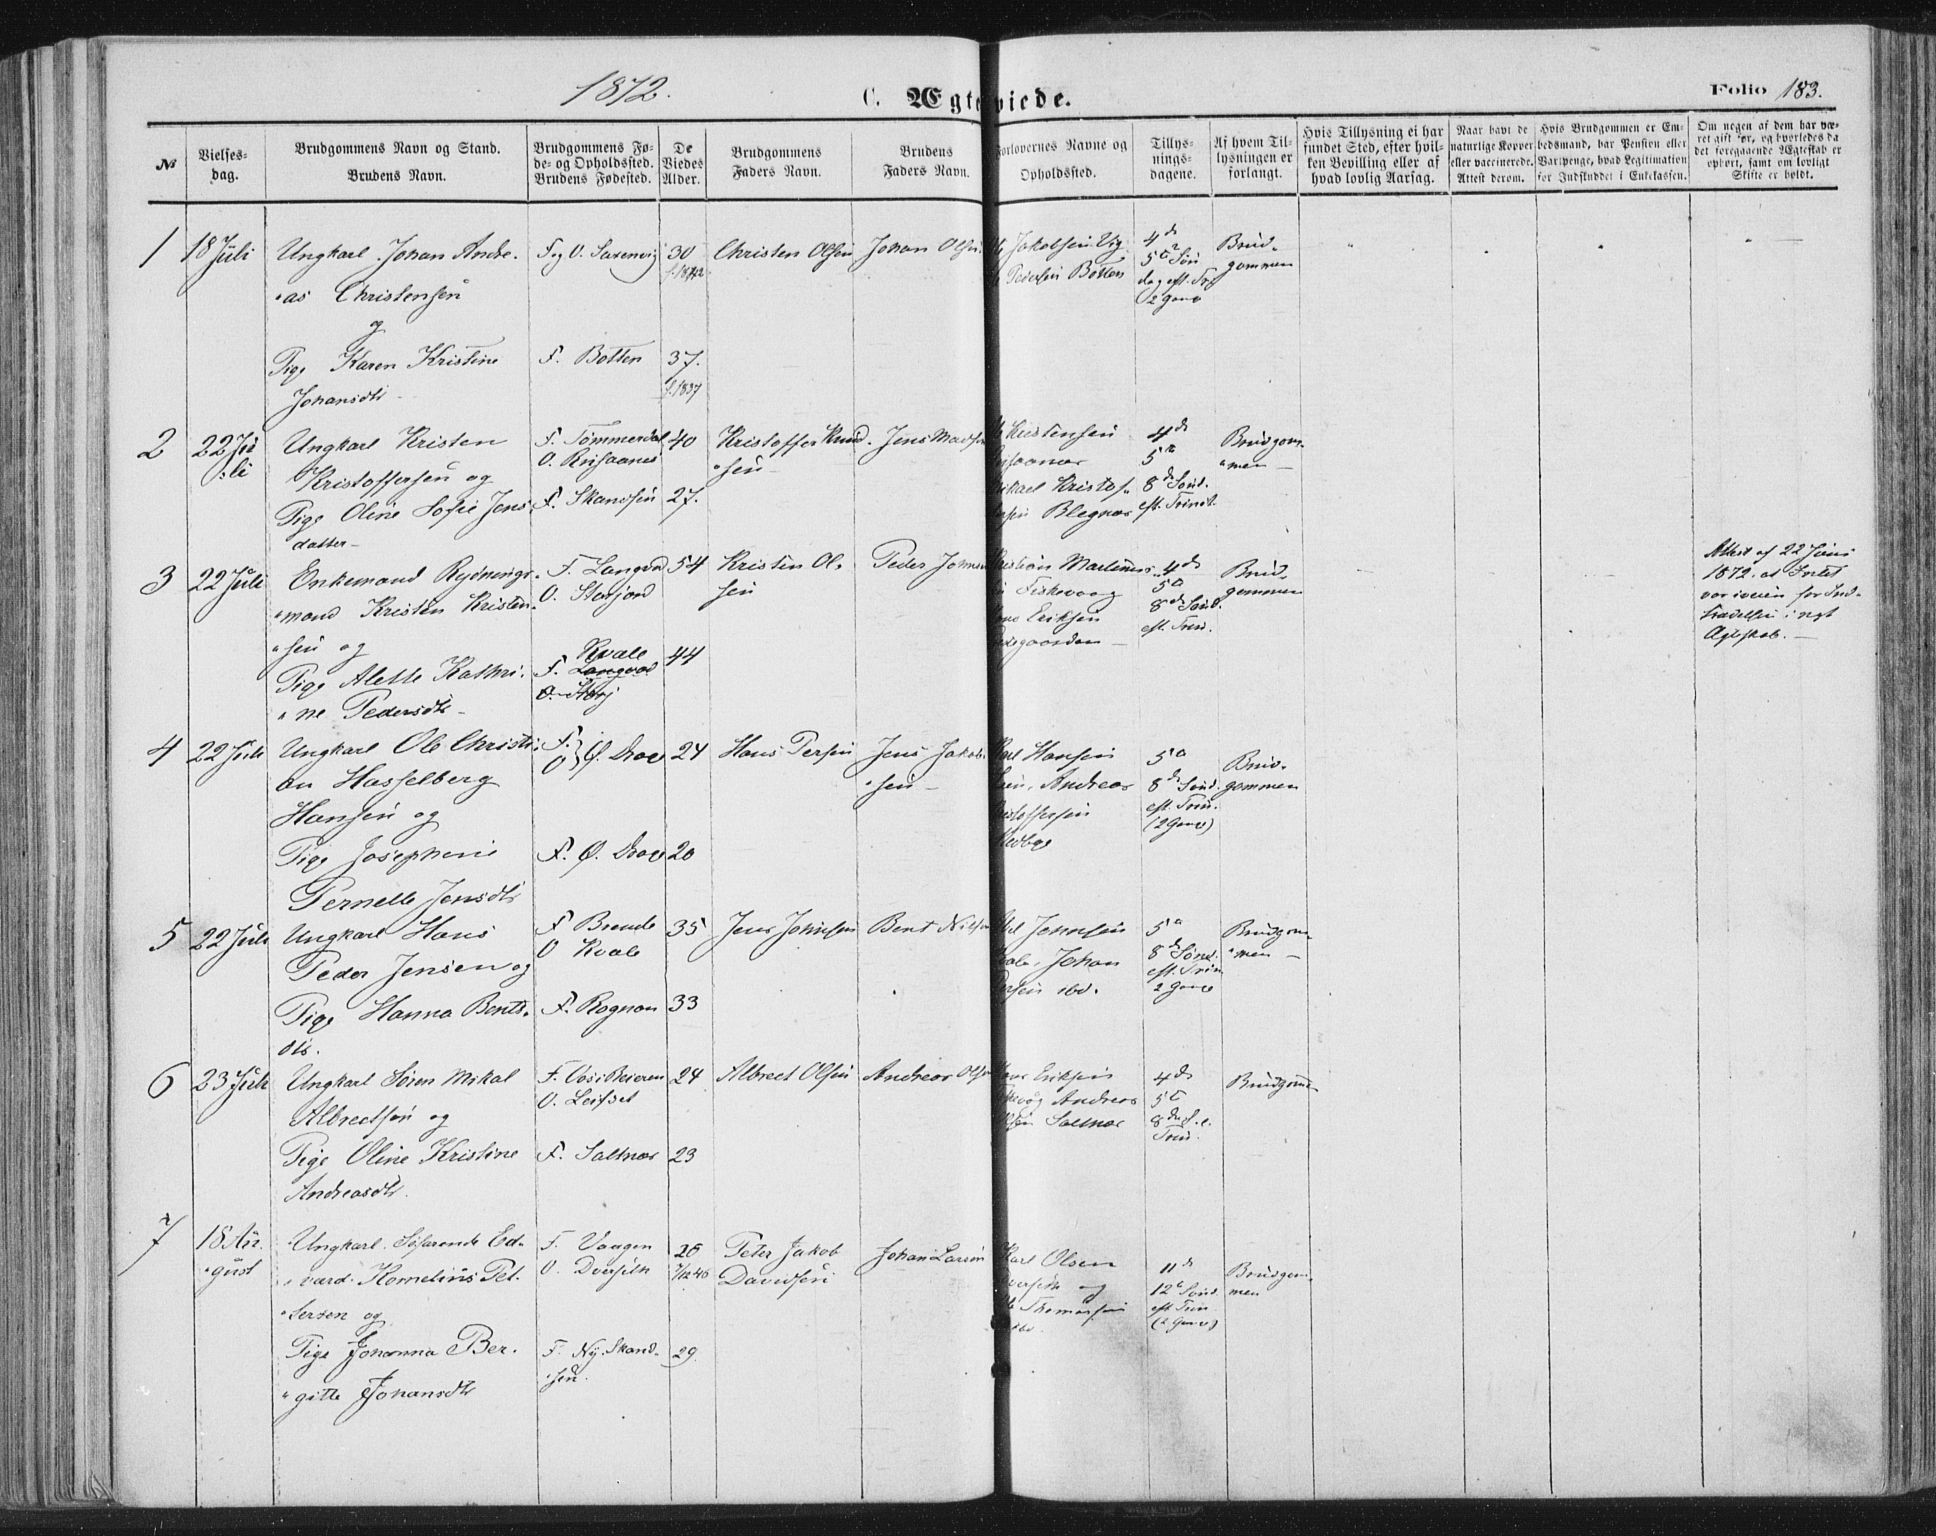 1872.
C. Ægteviede.
Folio 183.
No
Vielses-
dag.
Brudgommens Navn og Stand.
Brudens Navn.
Brudgommens Fø-
de- og Opholdssted.
Brudens Fødested.
De
Viedes
Alder.
Brudgommens
Faders Navn.
Brudens
Faders Navn.
Forlovernes Navne og
Opholdsted.
Tillys-
nings-
dagene.
Af hvem Til-
lysningen er
forlangt.
Hvis Tillysning ei har
fundet Sted, efter hvil-
ken Bevilling eller af
hvad lovlig Aarsag.
Naar havt de
naturlige Kopper
eller vaccinerede.
Attest derom.
Hvis Brudgommen er Em-
bedsmand, har Pension eller
Vartpenge, hvad Legitimation
for Indskuddet i Enkekassen.
Om nogen af dem har væ-
ret gift før, og hvorledes da
det foregaaende Ægteskab er
ophørt, samt om lovligt
Skifte er holdt.
1
18 Juli
Ungkarl Johan Andre-
"as Christensen
og
Pige Karen Kristine
Johansdtr
F. og O. Saxenvig
F. Botten
30
37.
f. 1837
Christen Olsen
Johan Olsen
Jakobsen Vig
Pedersen Botten
4de
5te Søn
dag eft. Tr
2 Gange
Brud-
gommen
2
22 Ju
"li
Ungkarl Kristen
Kristoffersen og
Pige Oline Sofie Jens
datter
F. Tømmerdal
O. Krisaanes
F. Skandsen
40
27.
Kristoffer Knud
"sen
Jens Madsen
Kristensen
Mikael Kristof-
Blegnæs
4de
5te
8de Sønd.
eft. Trinit.
Brudgom-
"men
3
22 Juli
Enkemand Rydnings-
"mand Kristen Kristen-
"sen og
Pige Alette Kathri-
"ne Pedersdtr
F. Langvad
O. Storjord
Kvale
F. Langvad
O. Storj
54
44
Kristen Ol-
sen
Peder Johnsen
Kristian Martinus-
Fiskevaag
Eriksen
4de
5te
8de Sønd.
eft. Trin.
Brud-
gommen
Attest af 22 Juni
1872, at Intet
var iveien for Ind-
trædelsen i nyt
Ægteskab.
4
22 Juli
Ungkarl Ole Christi-
an Hasselberg
Hansen og
Pige Josephine
Pernelle Jensdtr
F.
O. } Ø. Drage
F. Ø. Drage
24
20
Hans Persen
Jens Jakob-
"sen
Karl Hansen
Andreas
Kristoffersen
5te
8de Sønd.
eft. Trin.
(2 Gange)
Brud-
gommen
5
22 Juli
Ungkarl Hans
Peder Jensen og
Pige Hanna Bents-
dtr.
F Brende
O Kvale
F. Rognan
35
33
Jens Johnsen
Bent Nilsen
Jonnsen
Johan
ibd.
5te
8de Sønd.
eft. Trin
2 Gange
Brudgom-
"men
6
23 Juli
Ungkarl Søren Mikal
Albrectsen og
Pige Oline Kristine
Andreasdtr.
F. Oos i Beieren
O. Leifset
F. Saltnæs
24
23
Albrect Olsen
Andreas Olsen
Eriksen
Andreas
Saltnæs
4de
5te
8de S. e.
Trin.
Brudgomme
7
18 Au-
"gust
Ungkarl Søfarende Ed-
"vard Kornelius Pet-
"tersen og
Pige Johanna Ber-
"gitte Johansdtr
F. Vaagen
O. Dversetn
F. Ny. Skand-
"sen.
26
29.
Peter Jakob
Davidsen
Johan Larsen
Karl Olsen
og
Thomassen
ibd.
11te
12te Sønd.
eft. Trin
(2 Gange)
Brudgom-
men